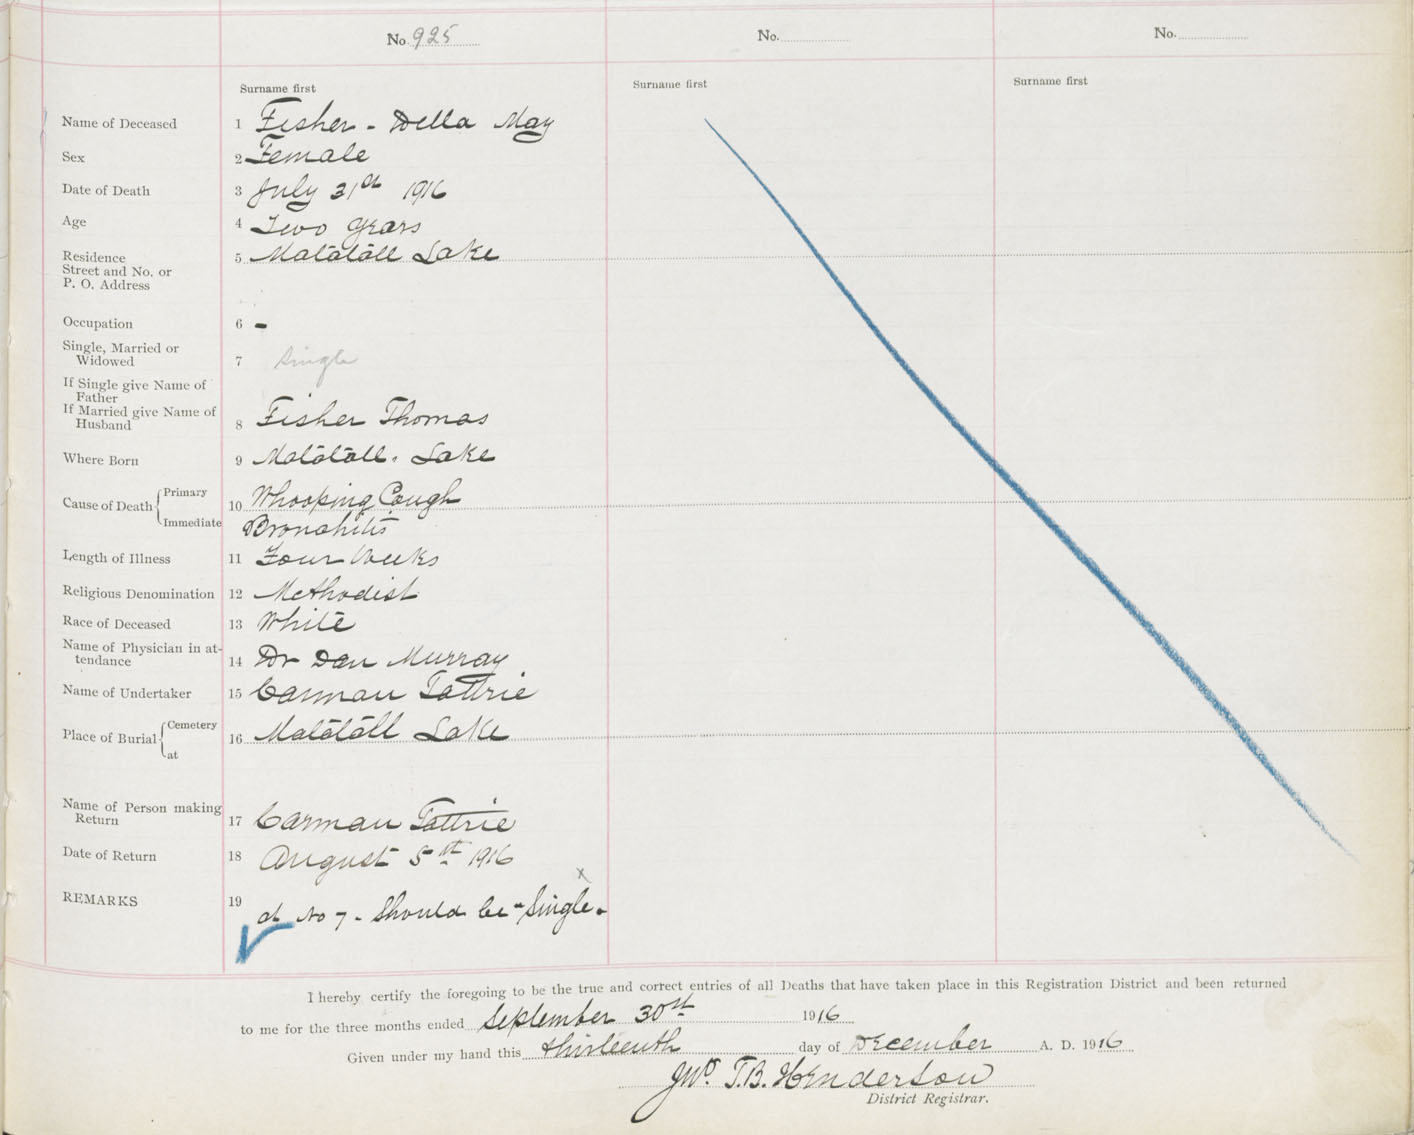 No. 925 No. No.
Surname first Surname first Surname first
Name of Deceased 1 Fisher - Della May
Sex 2 Female
Date of Death 3 July 31st 1916
Age 4 Two years
Residence 5 Matatall Lake
Street and No. or
P. O. Address
Occupation 6 -
Single, Married or
Widowed 7 Single
If Single give Name of
Father
If Married give Name of
Husband 8 Fisher Thomas
Where Born 9 Matatall. Lake
Cause of Death { Primary 10 Whooping Cough
Immediate Bronchitis
Length of Illness 11 Four Weeks
Religious Denomination 12 Methodist
Race of Deceased 13 White
Name of Physician in at-
tendance 14 Dr Dan Murray
Name of Undertaker 15 Carman Tattrie
Place of Burial { Cemetery 16 Matatall Lake
at
Name of Person making
Return 17 Carman Tattrie
Date of Return 18 August 5th 1916
REMARKS 19 x
at No 7 - Should be "Single.
I hereby certify the foregoing to be the true and correct entries of all Deaths that have taken place in this Registration District and been returned
to me for the three months ended September 30st 1916
Given under my hand this thirteenth day of December A. D. 1916
Jno. T.B. Henderson
District Registrar.